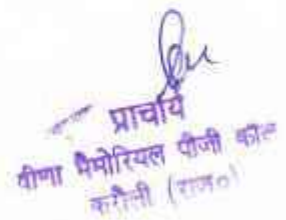 प्राचार्य
वीणा मैमोरियल पीजी कॉले
करौली (राज०)